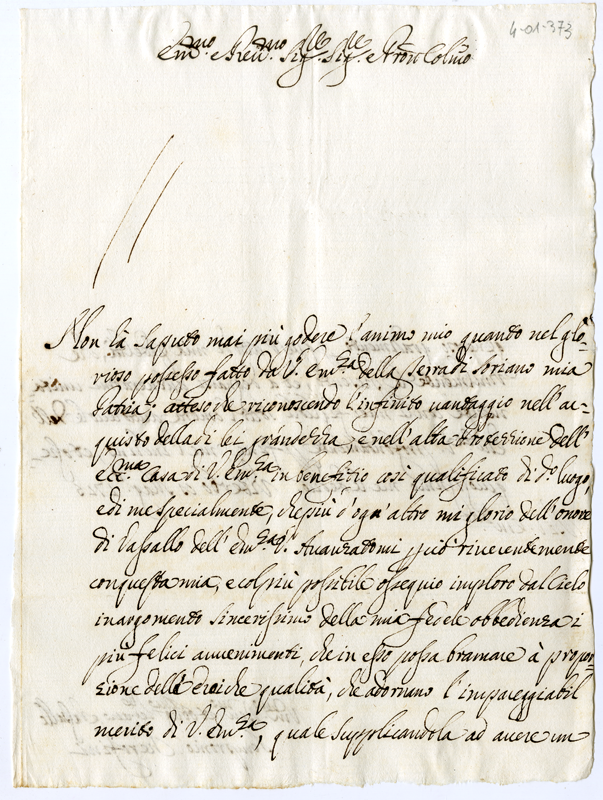 4-01-373
Em.mo e Rev.mo Sig.re Sig.re e Pron Colmo
Non hà saputo mai più godere l'animo mio quando nel glo=
rioso possesso fatto da V. Em.za della Terra di Soriano mia
Patria; atteso che riconoscendo l'infinito vantaggio nell'ac=
quisto della di lei grandezza, e nell'alta Protezzione dell'
ecc.ma Casa di V. Em.za in benefitio così qualificato di d.o luogo,
e di me specialmente, che più d'ogn'altro mi glorio dell'onore
di Vassallo dell'Em.za V. Avanzatomi può riverentemente
con questa mia, e col più possibile ossequio imploro dal Cielo
in argomento sincerissimo della mia fedele obbedienza i
più felici avvenimenti, che in esso possa bramare à propor=
zione delle eroiche qualità, che adornano l'impareggiabil
merito di V. Em.za, quale supplicandola ad avere un